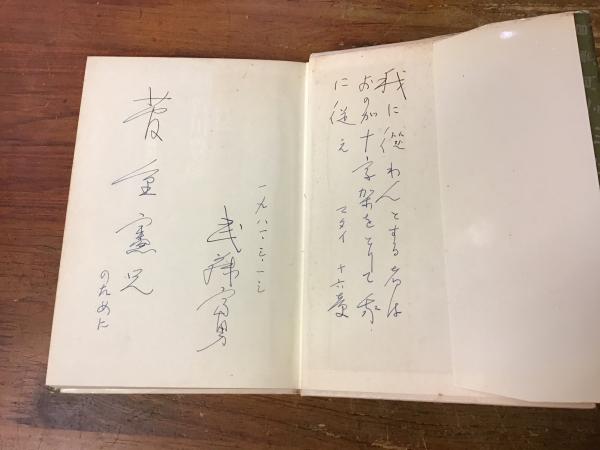 我に従わんとする者は
おのが十字架をとりて我
に従え マタイ 十六章
一九八一・三・一三
武藤富男
憲兄
のために